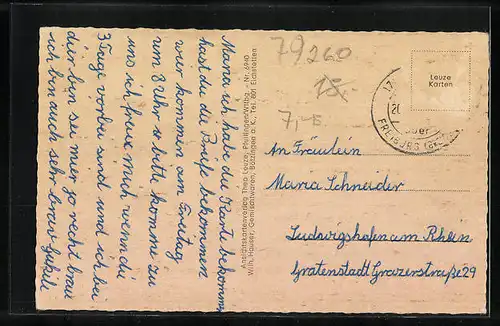 Maria ich habe die Karte bekommen
hast du die Briefe bekommen
wier kommen am Freitag
um 8 Uhr so bitt komme zu
uns ich freue mich wenn die
3 Tage vorbei sind und ich bei
dier bin sei mier so recht brav
ich bin auch sehr brav
Ansichtskartenverlag Theo Leuze, Pfullingen/Wttbg. - Nr. 6940
Wilh. Hauser, Gemischtwaren, Bötzingen a. K., Tel. 801 Eichstetten
79260
15,-
7,-E
Leuze
Karten
über
FREIBURG
An Fräulein
Maria Schneider
Ludwigshafen am Rhein
Gratenstadt Grazerstraße 29